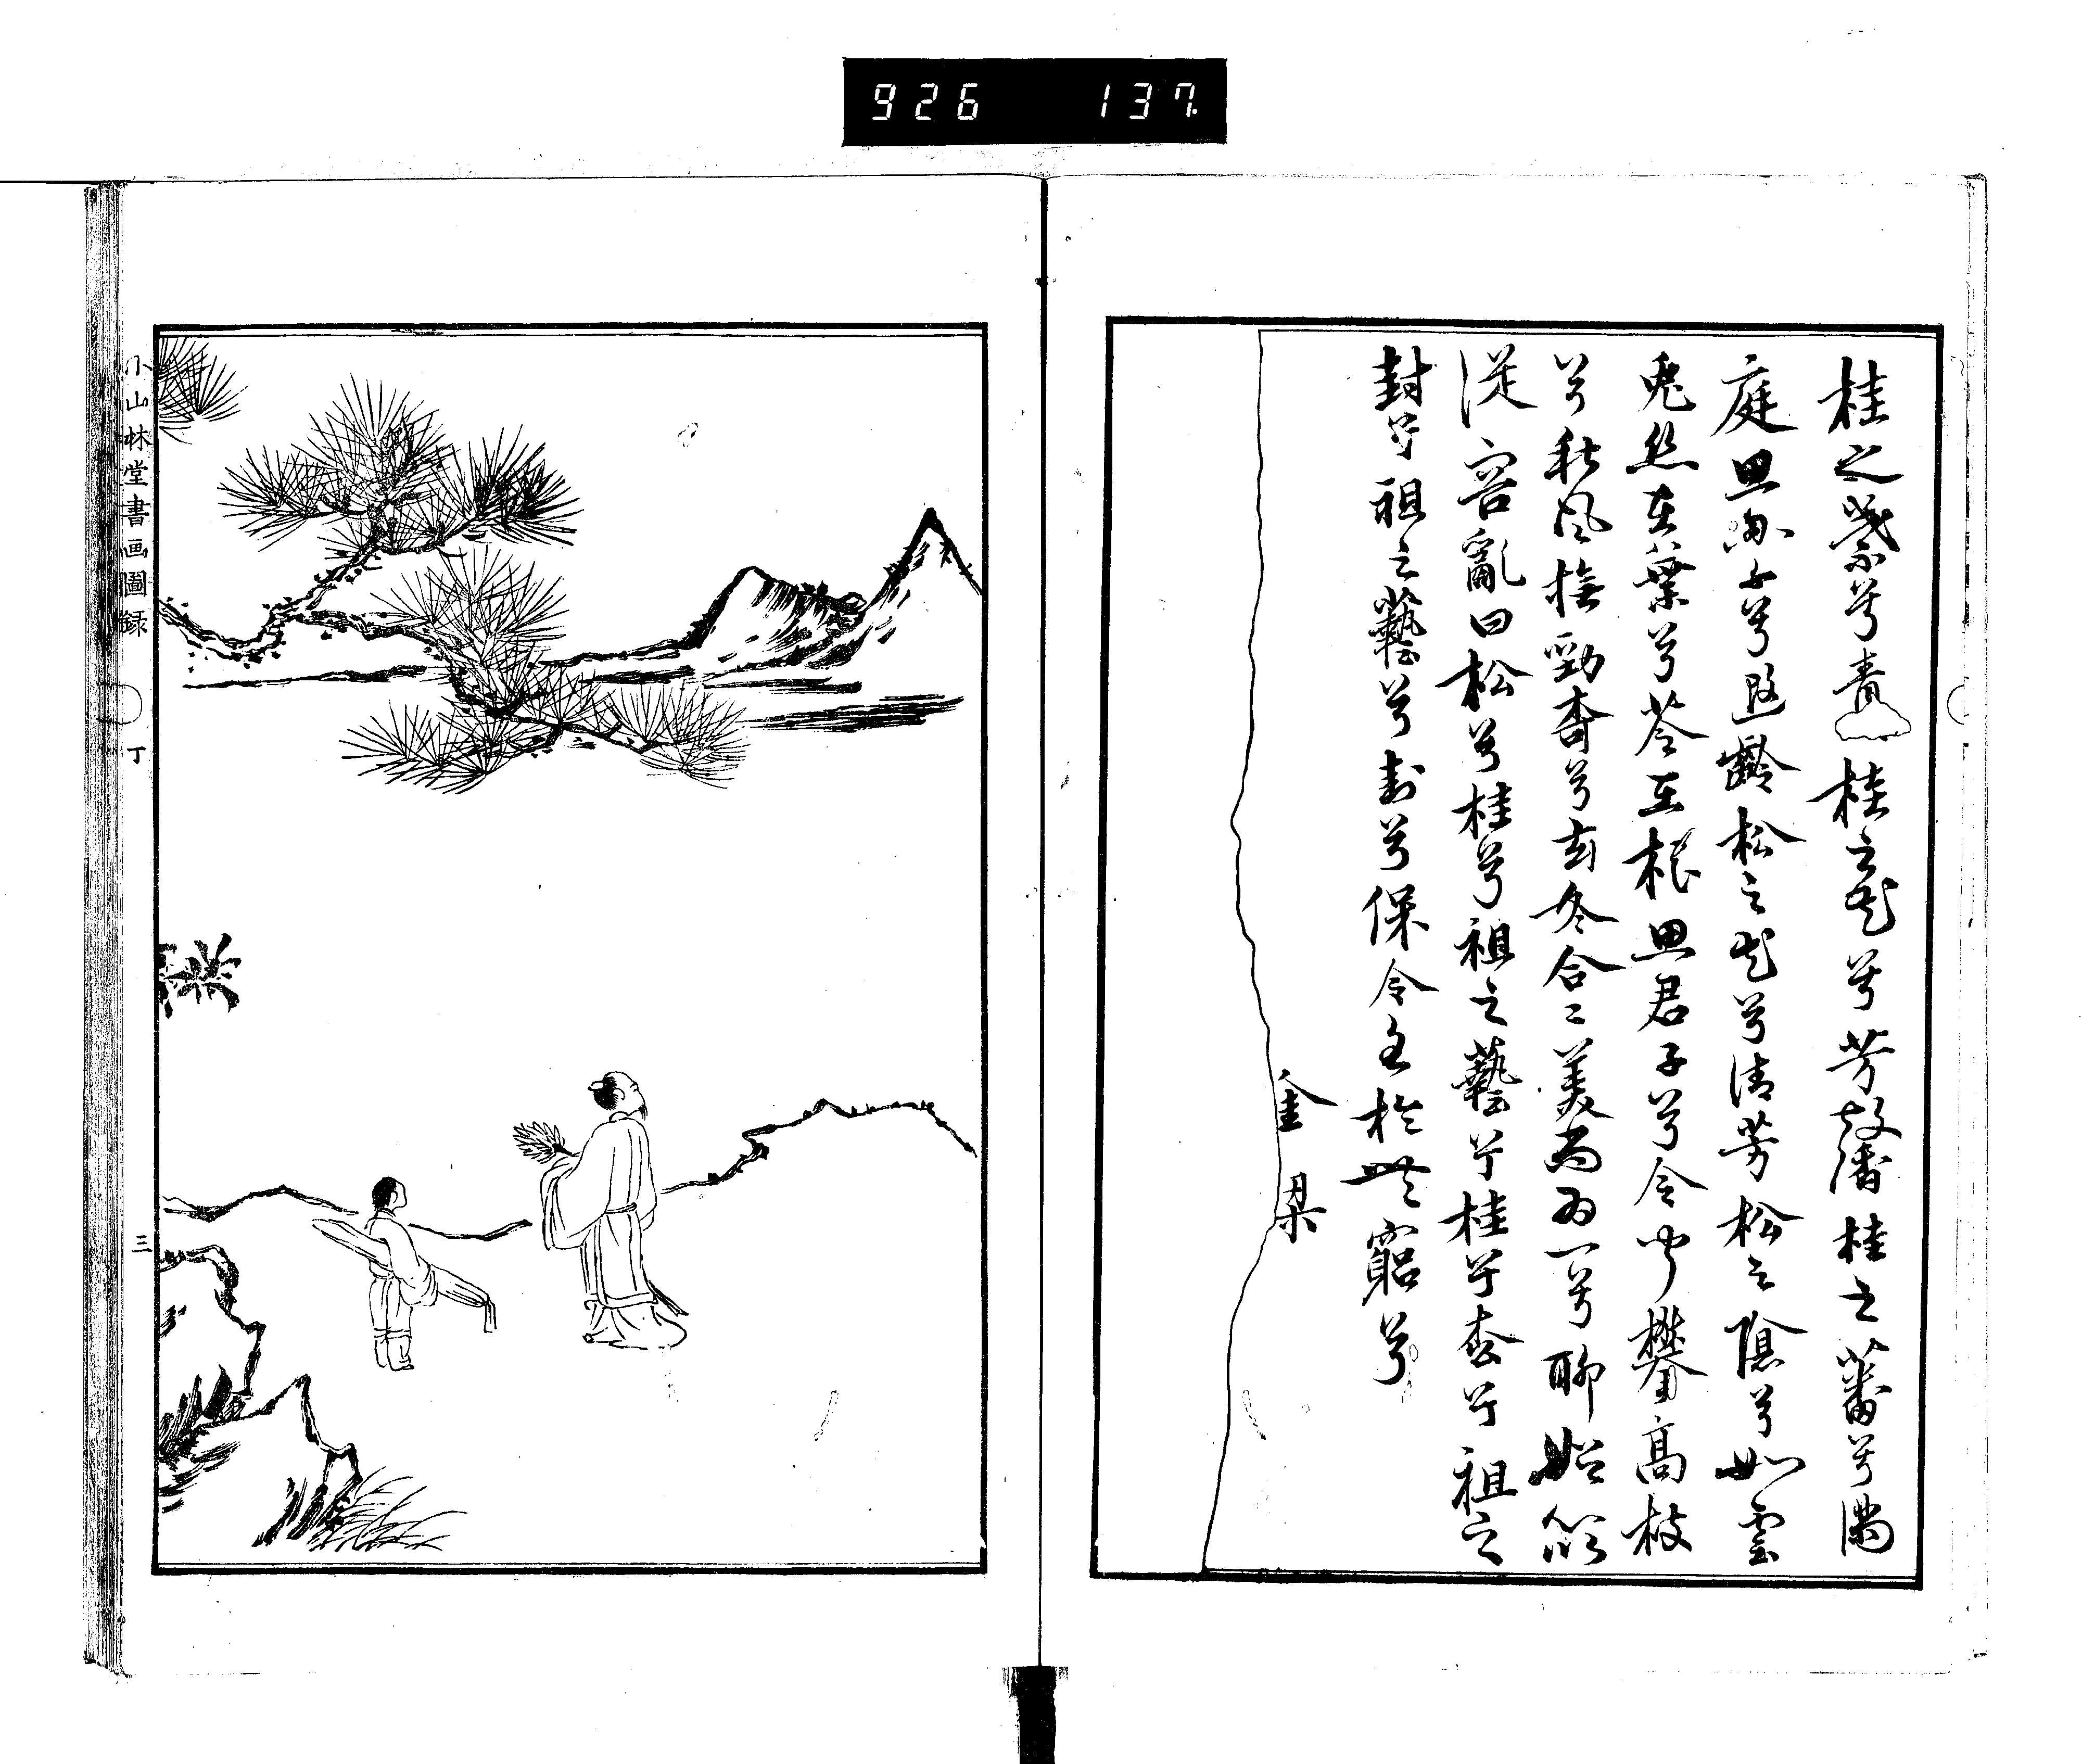 926 137
桂之叢兮青 桂之花兮芳故濃桂之蕃兮滿
庭思公子兮遐齡松之花兮清芳松之陰兮如雲
兎絲在葉兮苓在根思君子兮令聞攀高枝
兮秋風撫勁喬兮玄冬合二美而為一兮聊始終
從容亂曰松兮桂兮祖之藝兮桂兮松兮祖之
封兮祖之藝兮封兮保令名於無窮兮
金梁
小山林堂書画圖録
丁
三